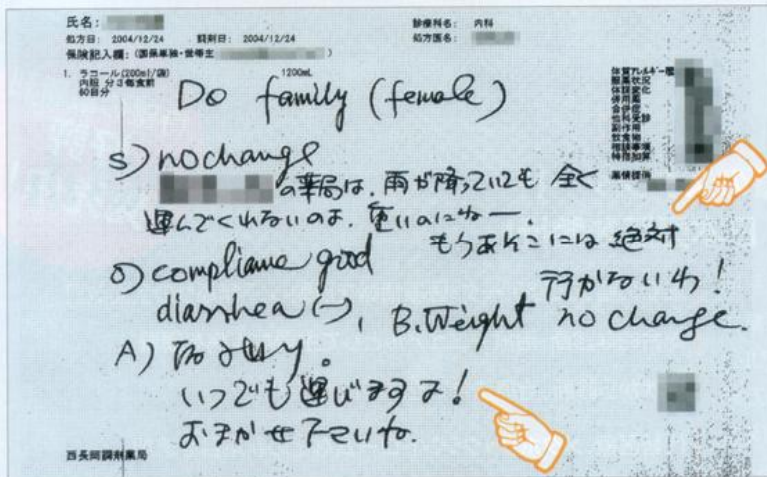 氏名:
処方日: 2004/12/24 調剤日: 2004/12/24
診療科名: 内科
処方医名:
保険記入欄:(国保単独・世帯主 )
1. ラコール(200ml/袋) 1200mL
内服 分3毎食前
60日分
体質アレルギー歴
服薬状況
体調変化
併用薬
合併症
他科受診
副作用
飲食物
相談事項
特指加算
薬情提供
Do family (female)
S) no change
の薬局は、雨が降っていても 全く
運んでくれないのよ、重いのにねー。
もうあそこには 絶対
行かないわ!
O) compliance good
diarrhea (-), B.Weight no change.
A)
いつでも運びますよ!
おまかせ下さいね。
西長岡調剤薬局